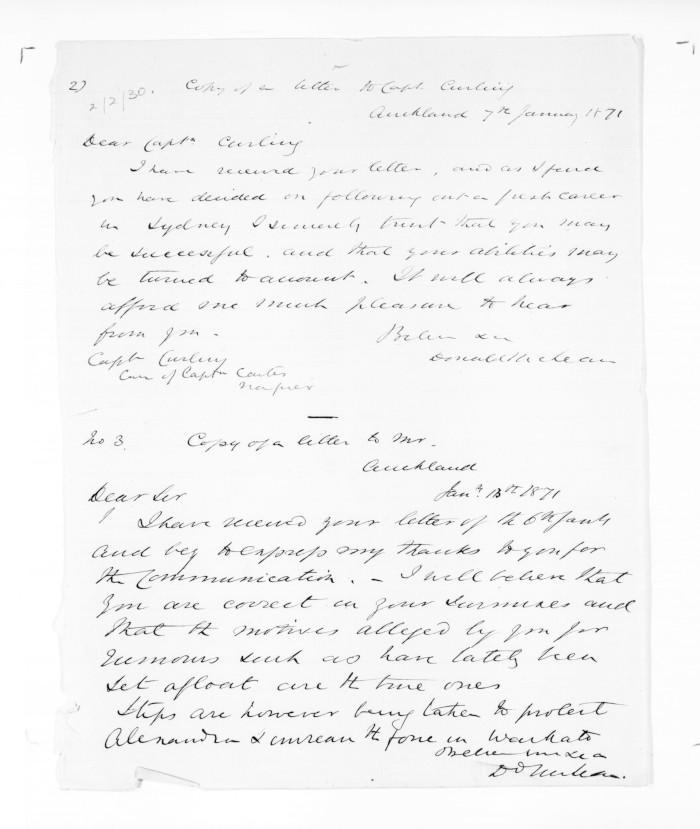 2)
2/2/30. Copy of a letter to Capt. Curling
Auckland 7th January 1871
Dear Captn Curling
I have received your letter, and as I find
you have decided on following out a fresh career
in Sydney I sincerely trust that you may
be successful. and that your abilities may
be turned to account. It will always
afford me much pleasure to hear
from you.
Believe &c
Donald McLean
Captn Curling
Care of Captn Carter
Napier
No 3. Copy of a letter to Mr.
Auckland
Jany 13th 1871
Dear Sir
I have received your letter of th 6th Jany
and beg to express my thanks to you for
the Communication. - I will believe that
you are correct in your surmises and
that th motives alleged by you for
rumours such as have lately been
set afloat are th true ones
Steps are however being taken to protect
Alexandra & increase th force in Waikato
Believe me &c
Dd McLean.